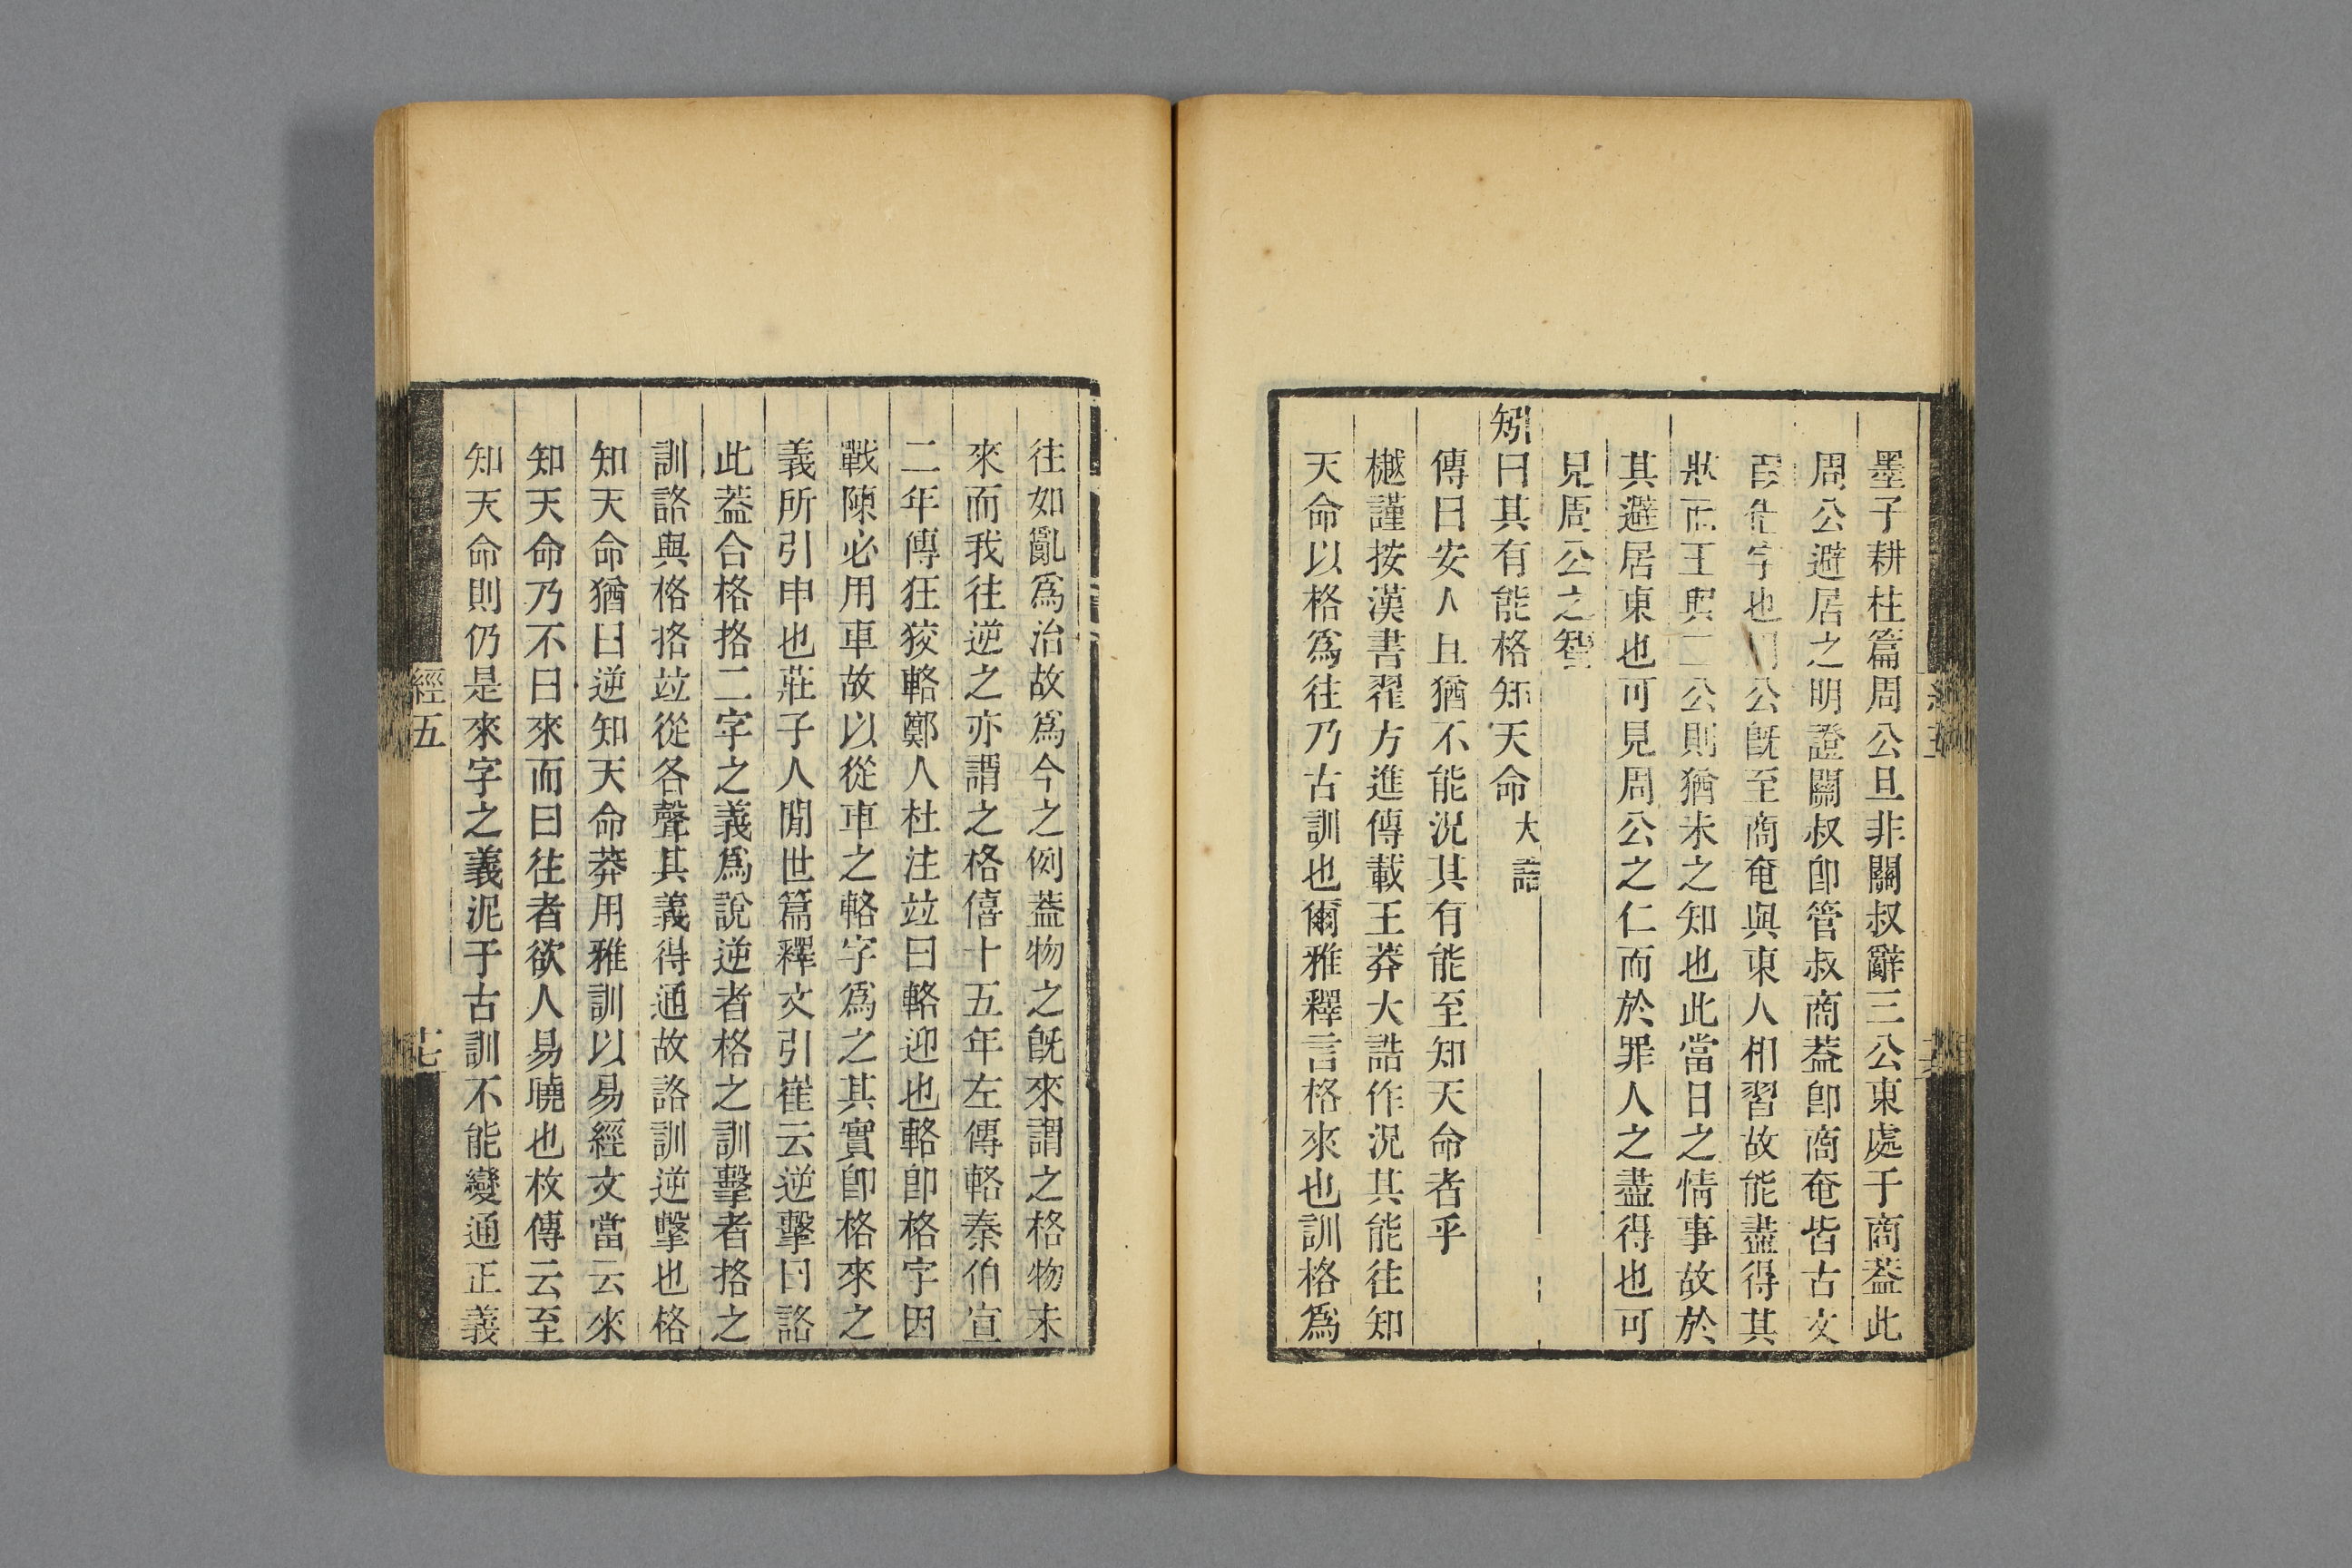 墨子耕柱篇周公旦非關叔辭三公東處于商葢此
周公避居之明證關叔卽管叔商葢卽商奄皆古文
字也公旣至商奄與東人相習故能盡得其
狀而王與二公則猶未之知也此當日之情事故於
其避居東也可見周公之仁而於罪人之盡得也可
見周公之智
矧曰其有能格知天命大誥
傳曰安人且猶不能況其有能至知天命者乎
樾謹按漢書翟方進傳載王莽大誥作況其能往知
天命以格爲往乃古訓也爾雅釋言格來也訓格爲
往如亂爲治故爲今之例葢物之旣來謂之格物未
來而我往逆之亦謂之格僖十五年左傳輅秦伯宣
二年傳狂狡輅鄭人杜注竝曰輅迎也輅卽格字因
戰陳必用車故以從車之輅字爲之其實卽格來之
義所引申也莊子人閒世篇釋文引崔云逆擊曰詻
此葢合格挌二字之義爲說逆者格之訓擊者挌之
訓詻與格挌竝從各聲其義得通故詻訓逆擊也格
知天命猶曰逆知天命莽用雅訓以易經文當云來
知天命乃不曰來而曰往者欲人易曉也枚傳云至
知天命則仍是來字之義泥于古訓不能變通正義
經五
十七